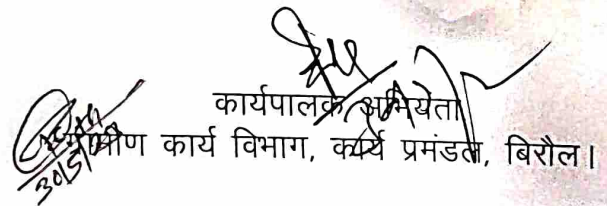 कार्यपालक अभियंता
ग्रामीण कार्य विभाग, कार्य प्रमंडल, बिरौल।